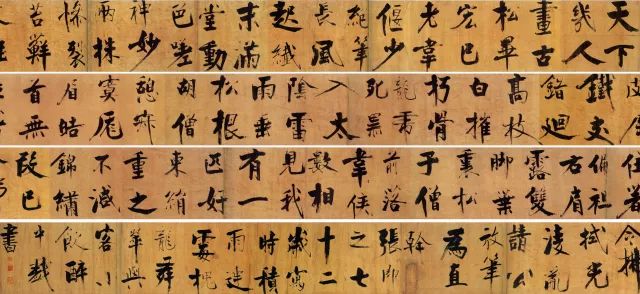 天下
幾人
畫古
松畢
宏已
老韋
偃少
絕筆
長風
起纖
末滿
堂動
色嗟
神妙
兩株
慘裂
苔蘚
皮屈
鐵交
錯迴
高枝
白摧
朽骨
龍虎
死黑
入太
陰雷
雨垂
松根
胡僧
憩寂
寞厖
眉皓
首無
住著
偏袒
右肩
露雙
脚葉
裏松
子僧
前落
韋侯
數相
見我
有一
匹好
東絹
重之
不減
錦繡
段已
令拂
拭光
凌亂
請公
放筆
為直
幹
張即
之七
十二
歲寫
時積
雨
槐
龍舞
翠與
客小
飲醉
中戲
書